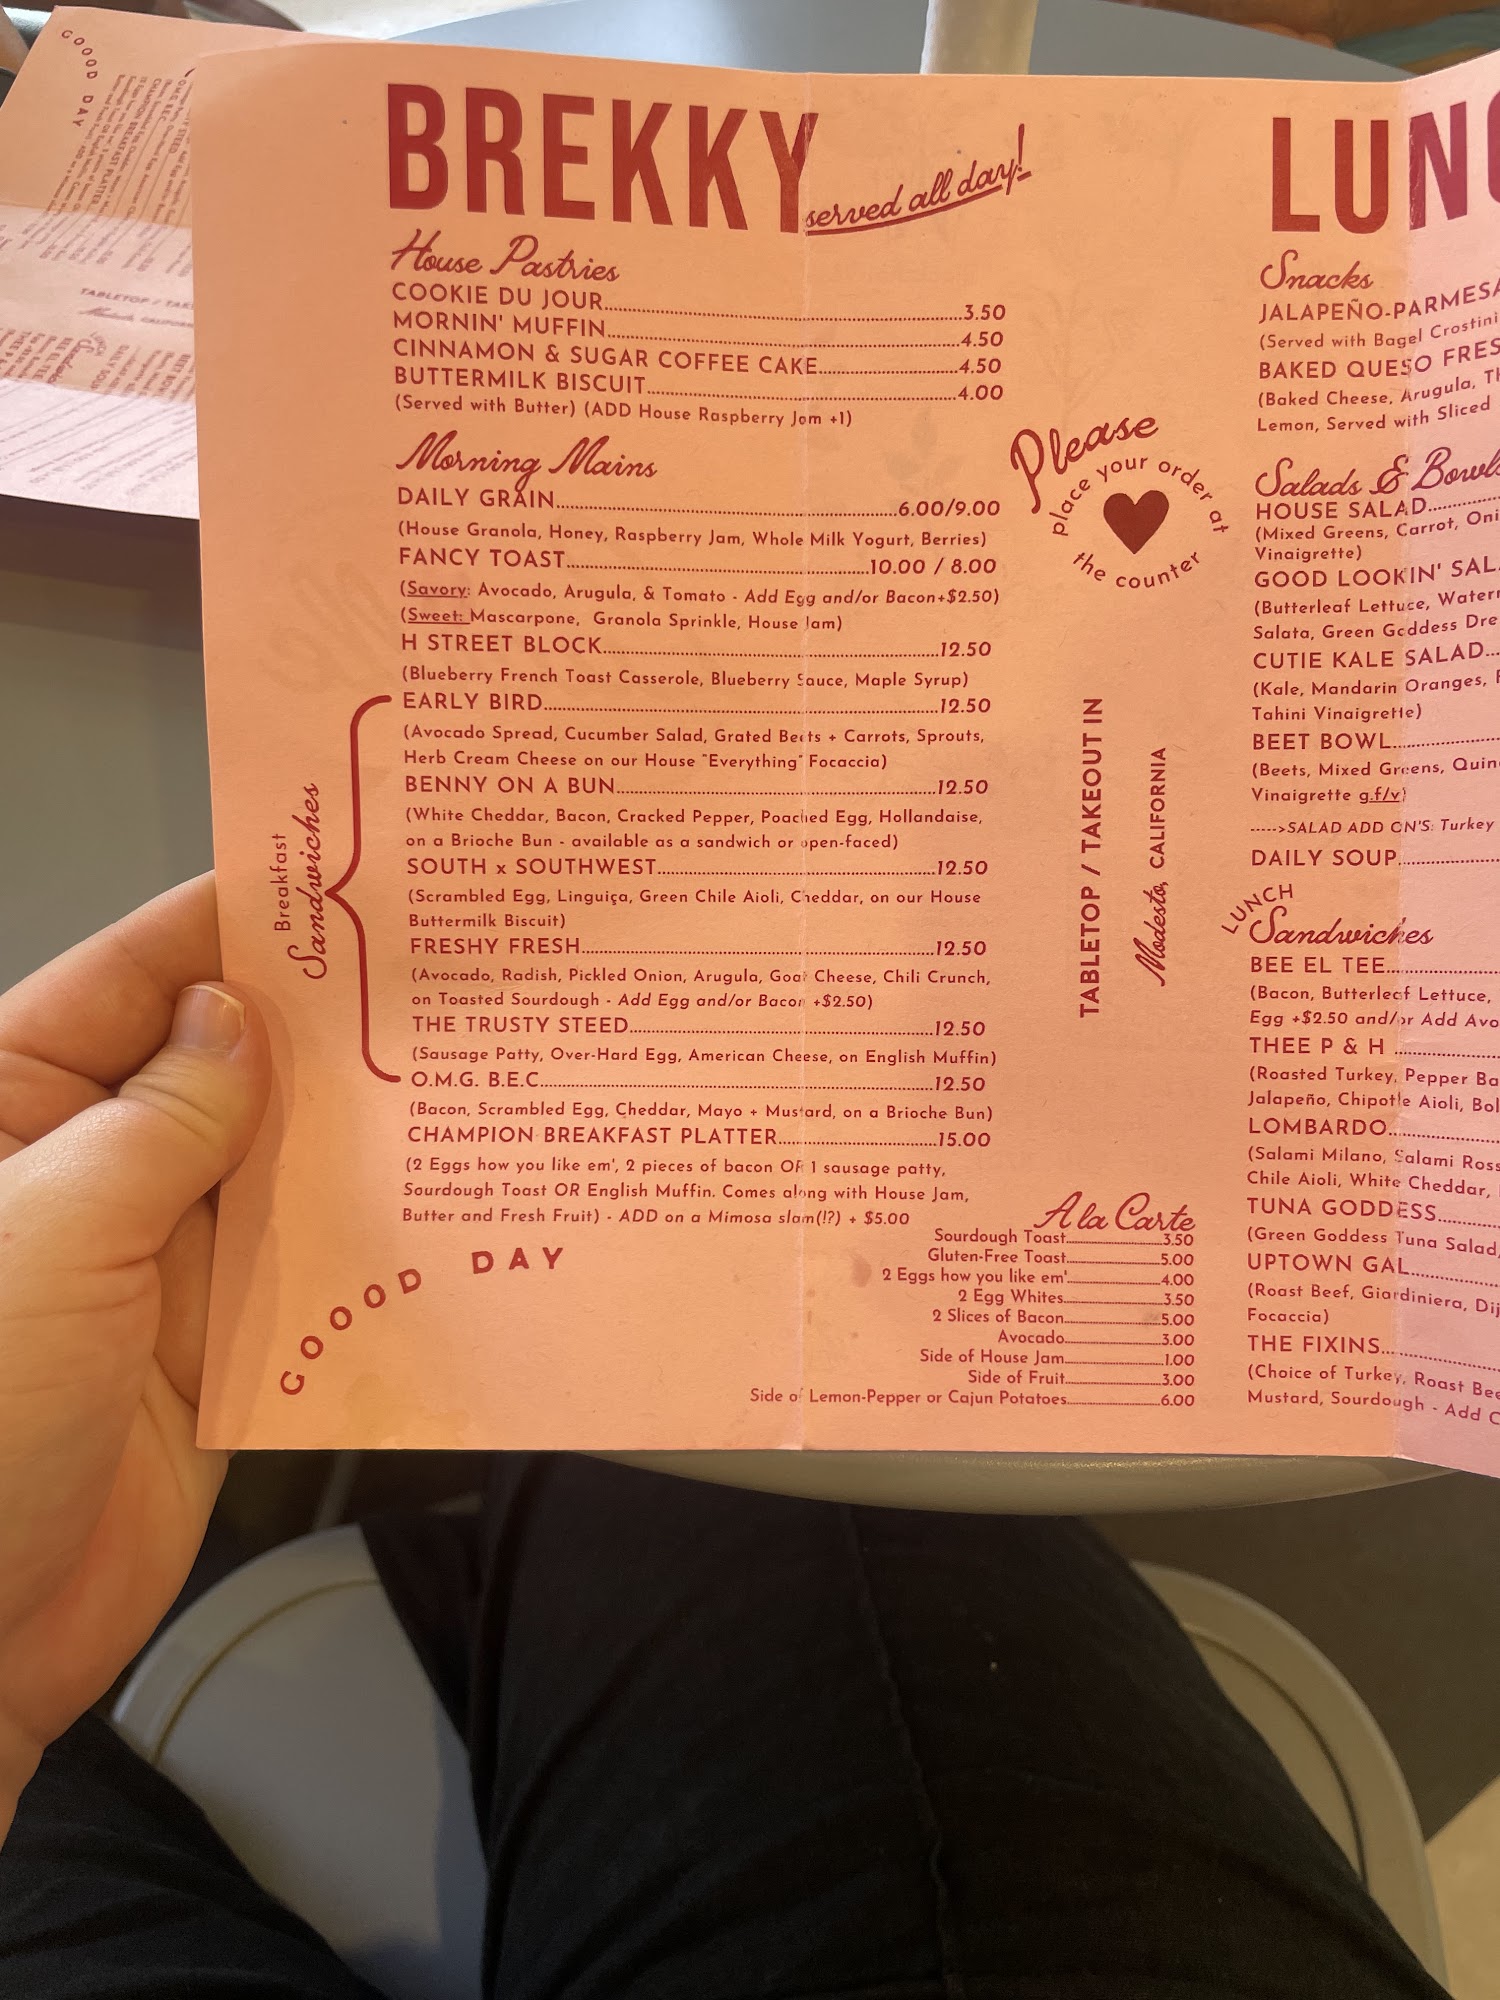 BREKKY
served all day!
House Pastries
COOKIE DU JOUR 3.50
MORNIN' MUFFIN 4.50
CINNAMON & SUGAR COFFEE CAKE 4.50
BUTTERMILK BISCUIT 4.00
(Served with Butter) (ADD House Raspberry Jam +1)
Morning Mains
DAILY GRAIN 6.00/9.00
(House Granola, Honey, Raspberry Jam, Whole Milk Yogurt, Berries)
FANCY TOAST 10.00 / 8.00
(Savory: Avocado, Arugula, & Tomato - Add Egg and/or Bacon+$2.50)
(Sweet: Mascarpone, Granola Sprinkle, House Jam)
H STREET BLOCK 12.50
(Blueberry French Toast Casserole, Blueberry Sauce, Maple Syrup)
Breakfast
Sandwiches
EARLY BIRD 12.50
(Avocado Spread, Cucumber Salad, Grated Beets + Carrots, Sprouts,
Herb Cream Cheese on our House "Everything" Focaccia)
BENNY ON A BUN 12.50
(White Cheddar, Bacon, Cracked Pepper, Poached Egg, Hollandaise,
on a Brioche Bun - available as a sandwich or open-faced)
SOUTH x SOUTHWEST 12.50
(Scrambled Egg, Linguiça, Green Chile Aioli, Cheddar, on our House
Buttermilk Biscuit)
FRESHY FRESH 12.50
(Avocado, Radish, Pickled Onion, Arugula, Goat Cheese, Chili Crunch,
on Toasted Sourdough - Add Egg and/or Bacon +$2.50)
THE TRUSTY STEED 12.50
(Sausage Patty, Over-Hard Egg, American Cheese, on English Muffin)
O.M.G. B.E.C. 12.50
(Bacon, Scrambled Egg, Cheddar, Mayo + Mustard, on a Brioche Bun)
CHAMPION BREAKFAST PLATTER 15.00
(2 Eggs how you like em', 2 pieces of bacon OR 1 sausage patty,
Sourdough Toast OR English Muffin. Comes along with House Jam,
Butter and Fresh Fruit) - ADD on a Mimosa slam(!?) + $5.00
GOOOD DAY
A la Carte
Sourdough Toast 3.50
Gluten-Free Toast 5.00
2 Eggs how you like em' 4.00
2 Egg Whites 3.50
2 Slices of Bacon 5.00
Avocado 3.00
Side of House Jam 1.00
Side of Fruit 3.00
Side of Lemon-Pepper or Cajun Potatoes 6.00
Please
place your order at
the counter
TABLETOP / TAKEOUT IN
Modesto, CALIFORNIA
Snacks
(Served with Bagel Crostini
BAKED QUESO
(Baked Cheese, Arugula,
Lemon, Served with Sliced
Salads & Bowls
HOUSE SALAD
(Mixed Greens, Carrot,
Vinaigrette)
GOOD LOOKIN'
(Butterleaf Lettuce,
Salata, Green Goddess
CUTIE KALE SALAD
(Kale, Mandarin Oranges,
Tahini Vinaigrette)
BEET BOWL
(Beets, Mixed Greens,
Vinaigrette g.f/v)
----->SALAD ADD ON'S: Turkey
DAILY SOUP
LUNCH
Sandwiches
BEE EL TEE
(Bacon, Butterleaf Lettuce,
Egg +$2.50 and/or Add
THEE P & H
(Roasted Turkey, Pepper
Jalapeño, Chipotle Aioli,
LOMBARDO
(Salami Milano, Salami
Chile Aioli, White Cheddar,
TUNA GODDESS
(Green Goddess Tuna Salad,
UPTOWN GAL
(Roast Beef, Giardiniera,
Focaccia)
THE FIXINS
(Choice of Turkey, Roast
Mustard, Sourdough - Add
GOOOD DAY
CHAMPION BREAKFAST PLATTER